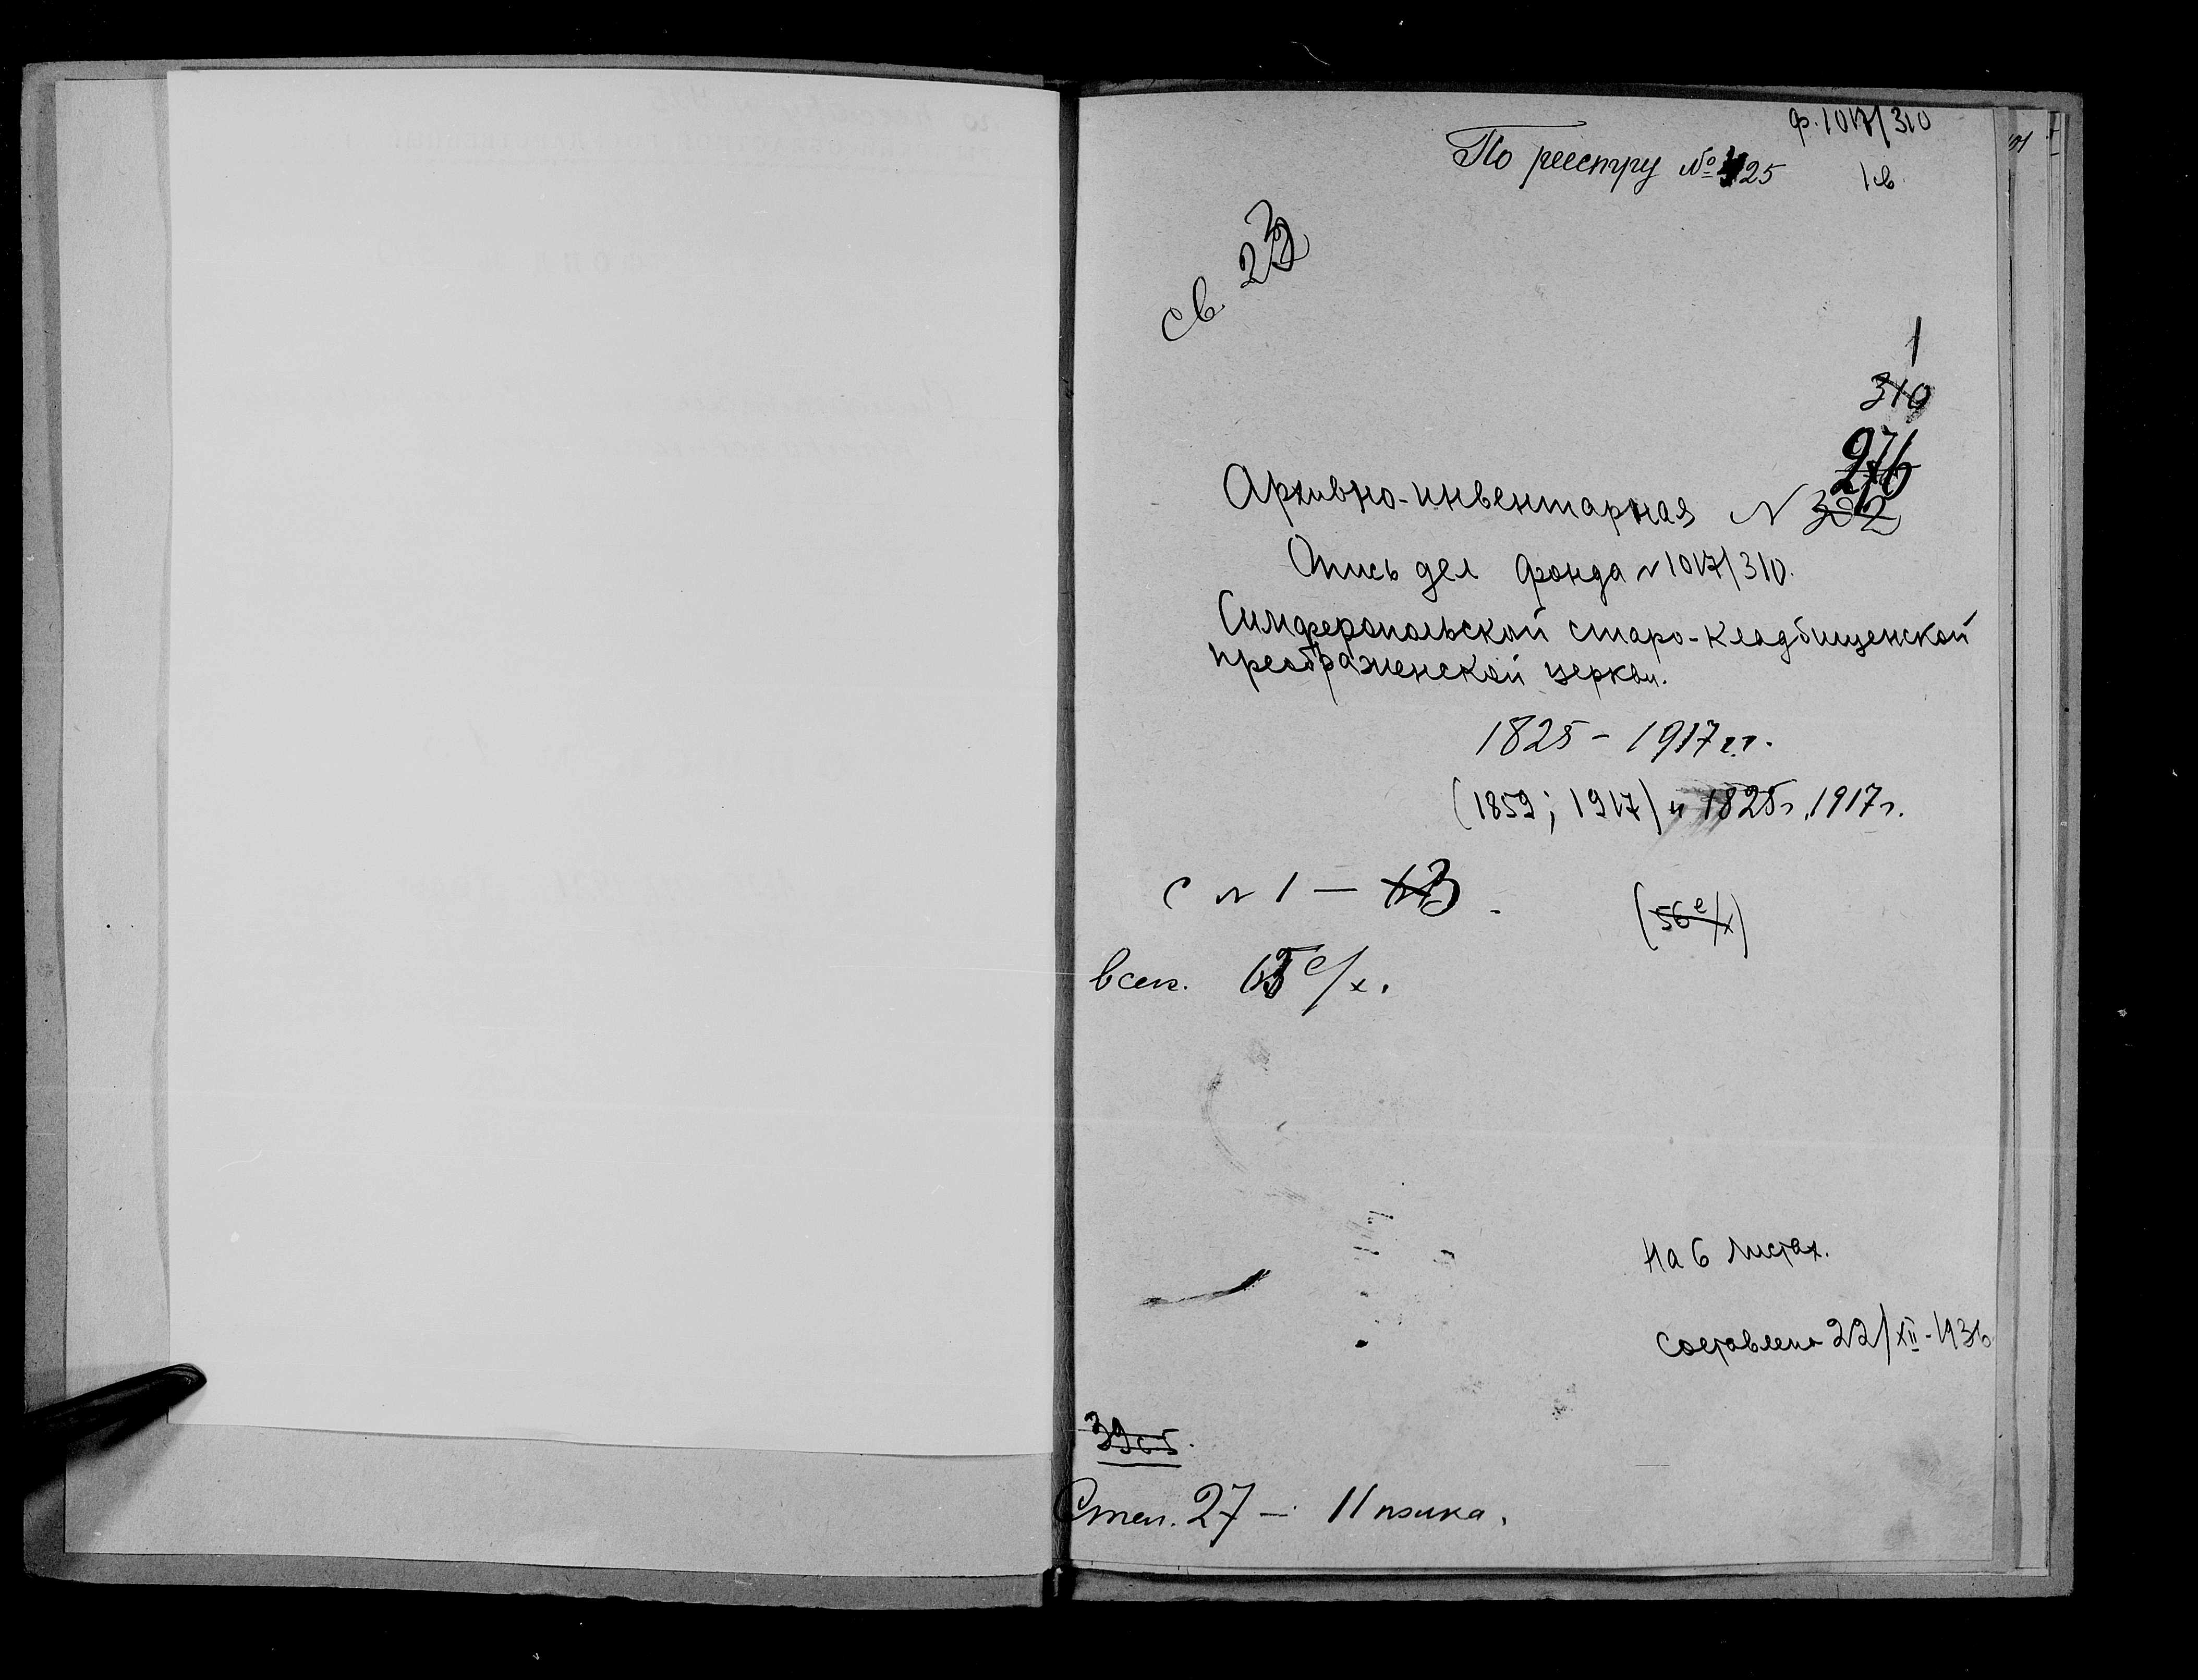 ф. 1017/310
По реестру № 425
1 св
св. 23
1
310
276
Архивно-инвентарная N 302
Опись дел фонда N 1017/310.
Симферопольской старо-кладбищенской
преображенской церкви.
1825 - 1917 г.г.
(1859; 1917) и 1825г. 1917г.
с N 1 —
(56 е/х)
всег. е/х.
На 6 листах.
Составлена 22/XII-1936
39
Стел. 27 — 11 полка.